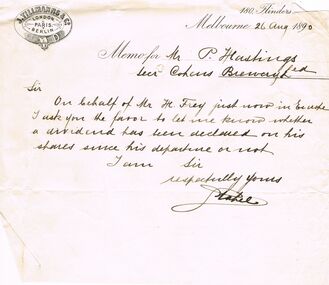 180, Flinders
LONDON
PARIS
BERLIN
Melbourne 26 Aug 1890
Memo for Mr P. Hastings
Secr Cohens Brewery
Sir
On behalf of Mr H. Frey just now in Europe
I ask you the favor to let me know whether
a dividend has been declared on his
shares since his departure or not
I am Sir
respectfully yours